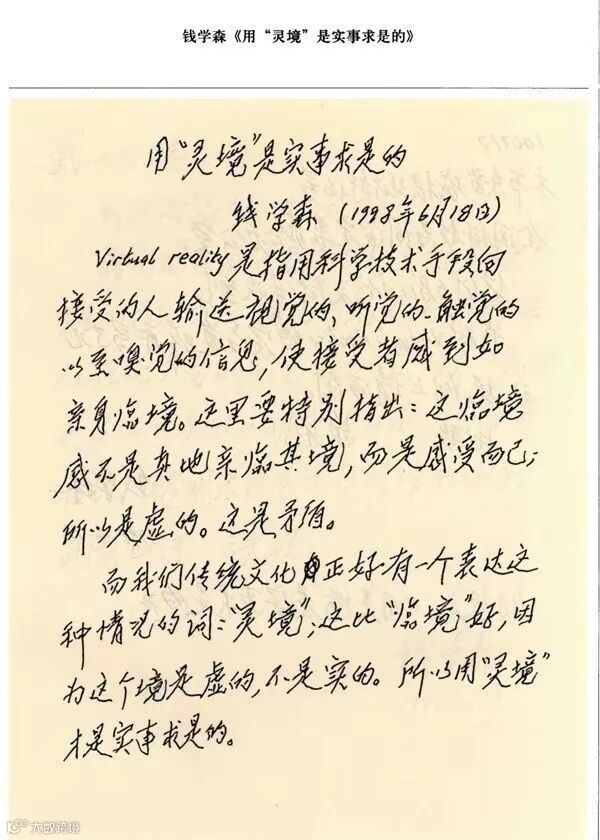 钱学森《用“灵境”是实事求是的》
用“灵境”是实事求是的
钱学森（1998年6月18日）
Virtual reality是指用科学技术手段向
接受的人输送视觉的、听觉的、触觉的
以至嗅觉的信息，使接受者感到如
亲身临境。这里要特别指出：这临境
感不是真地亲临其境，而是感受而已；
所以是虚的。这是矛盾。
而我们传统文化正好有一个表达这
种情况的词：“灵境”；这比“临境”好，因
为这个境是虚的，不是实的。所以用“灵境”
才是实事求是的。
大数跨境